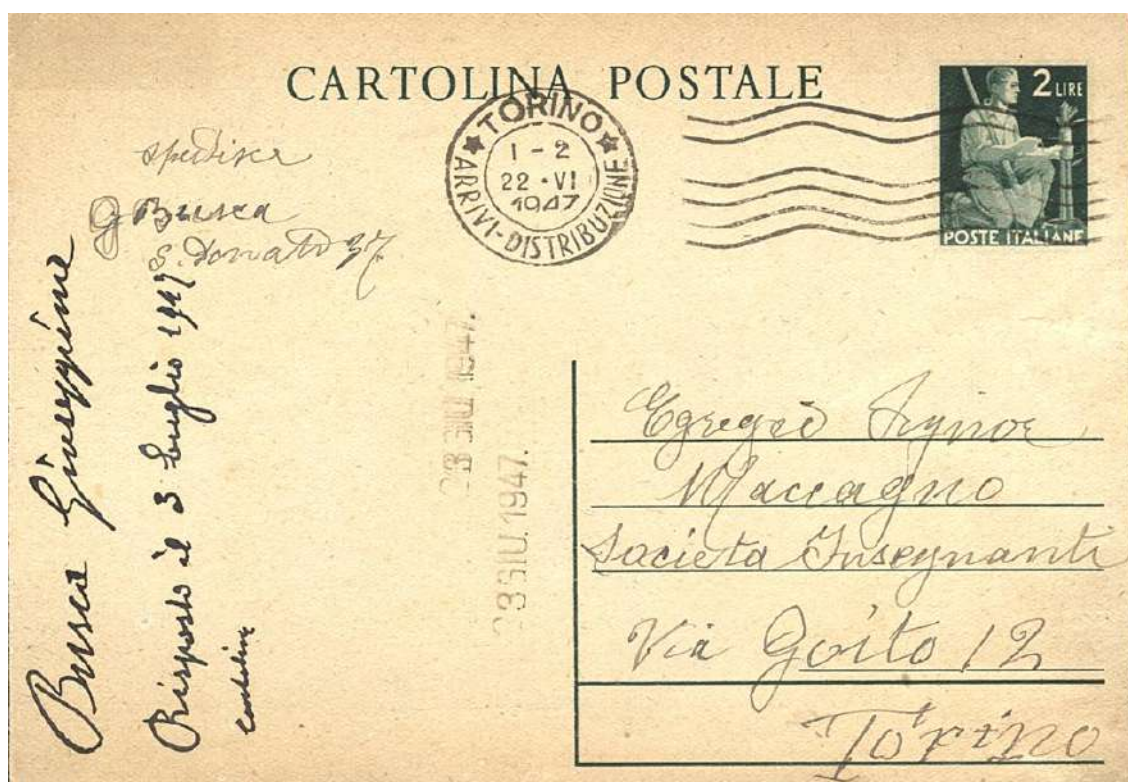 CARTOLINA POSTALE
2 LIRE
POSTE ITALIANE
TORINO
1-2
22·VI
1947
ARRIVI-DISTRIBUZIONE
G Busca
S. Donato 37
Busca Giuseppina
Risposto il 3 Luglio 1947
23 GIU. 1947.
23 GIU. 1947.
Egregio Signor
Maccagno
Società Insegnanti
Via Goito 12
Torino